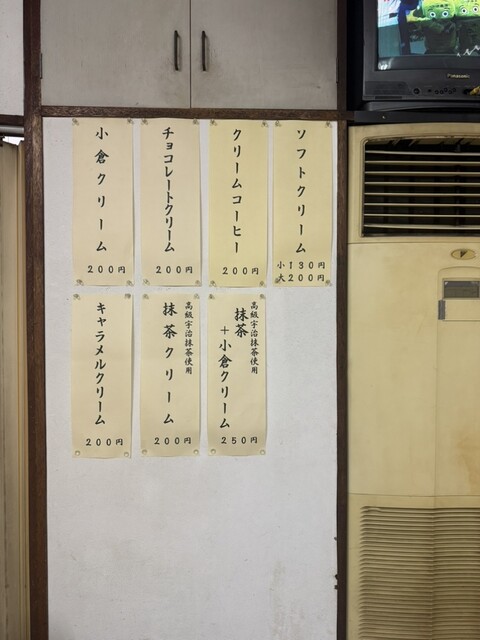 ソフトクリーム
小130円
大200円
クリームコーヒー
200円
チョコレートクリーム
200円
小倉クリーム
200円
高級宇治抹茶使用
抹茶
+小倉クリーム
250円
高級宇治抹茶使用
抹茶クリーム
200円
キャラメルクリーム
200円
Panasonic